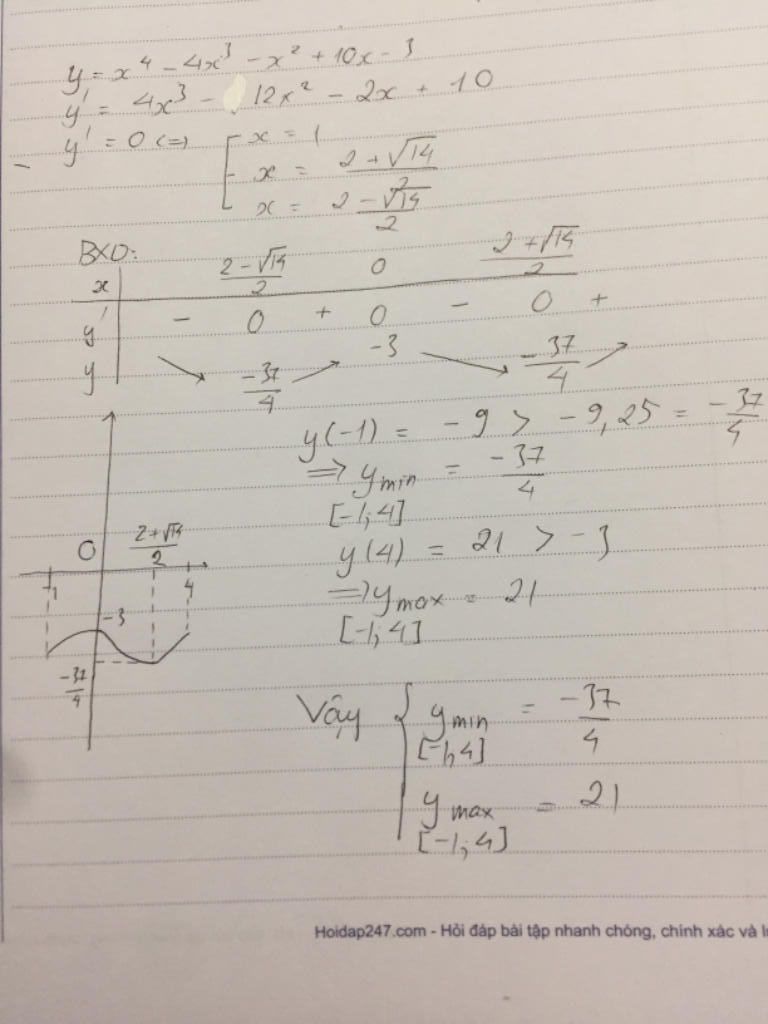 y = x⁴ - 4x³ - x² + 10x - 3
y' = 4x³ - 12x² - 2x + 10
- y' = 0 <=> [ x = 1
x = (2 + √14)/2
x = (2 - √14)/2
BXD:
x | (2 - √14)/2 0 (2 + √14)/2
y' | - 0 + 0 - 0 +
y | ↘ -37/4 ↗ -3 ↘ -37/4 ↗
y(-1) = -9 > -9,25 = -37/4
=> y min [-1; 4] = -37/4
y(4) = 21 > -3
=> y max [-1; 4] = 21
O (2 + √14)/2
-1 4
-3
-37/4
Vậy { y min [-1; 4] = -37/4
y max [-1; 4] = 21
Hoidap247.com - Hỏi đáp bài tập nhanh chóng, chính xác và